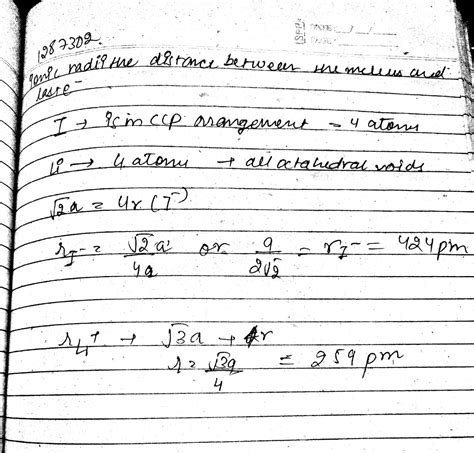 DATE: / /
PAGE:
1287302.
ionic radii the distance between the nucleus and
last e⁻
I → is in CCP arrangement = 4 atoms
Li → 4 atoms → all octahedral voids
√2a = 4r (I⁻)
r I⁻ = √2a / 4a or a / 2√2 = r I⁻ = 424pm
r Li⁺ → √3a → 4r
r = √3a / 4 = 259 pm